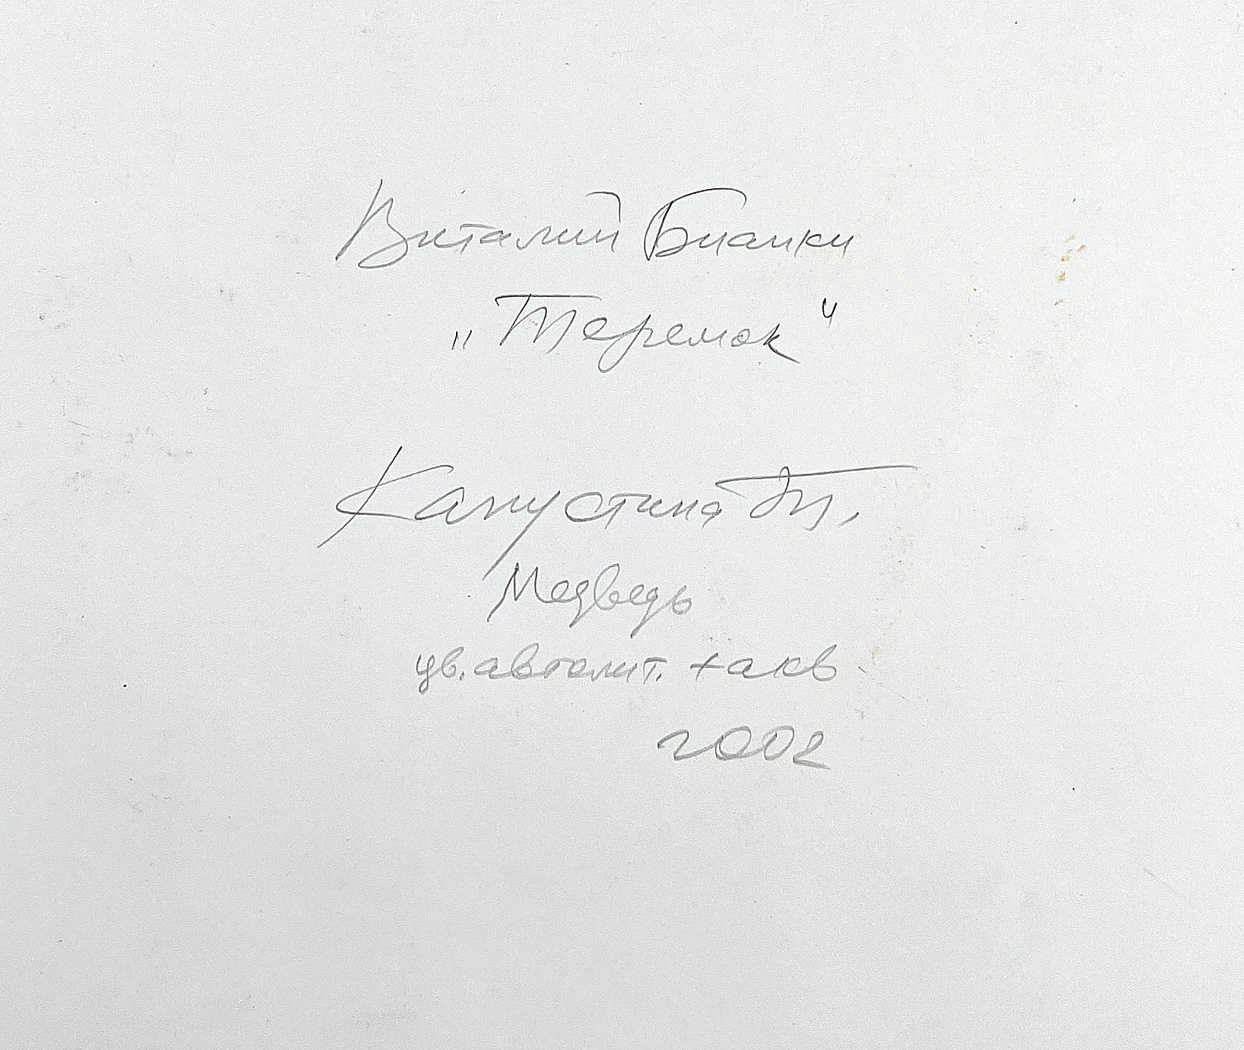 Виталий Бианки
„Теремок“
Капустина Т.
Медведь
цв. автолит. + акв
2002